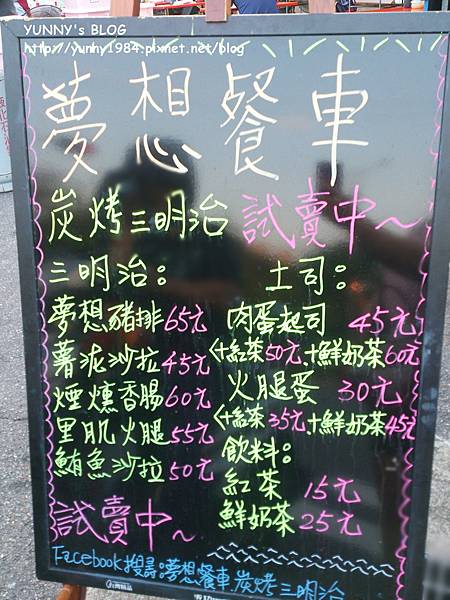 YUNNY's BLOG
http://yunny1984.pixnet.net/blog
夢想餐車
炭烤三明治 試賣中~
三明治:
夢想豬排65元
薯泥沙拉45元
煙燻香腸60元
里肌火腿55元
鮪魚沙拉50元
試賣中~
土司:
肉蛋起司 45元
<+紅茶50元 +鮮奶茶60元
火腿蛋 30元
<+紅茶35元 +鮮奶茶45元
飲料:
紅茶 15元
鮮奶茶25元
Facebook搜尋:夢想餐車.炭烤三明治